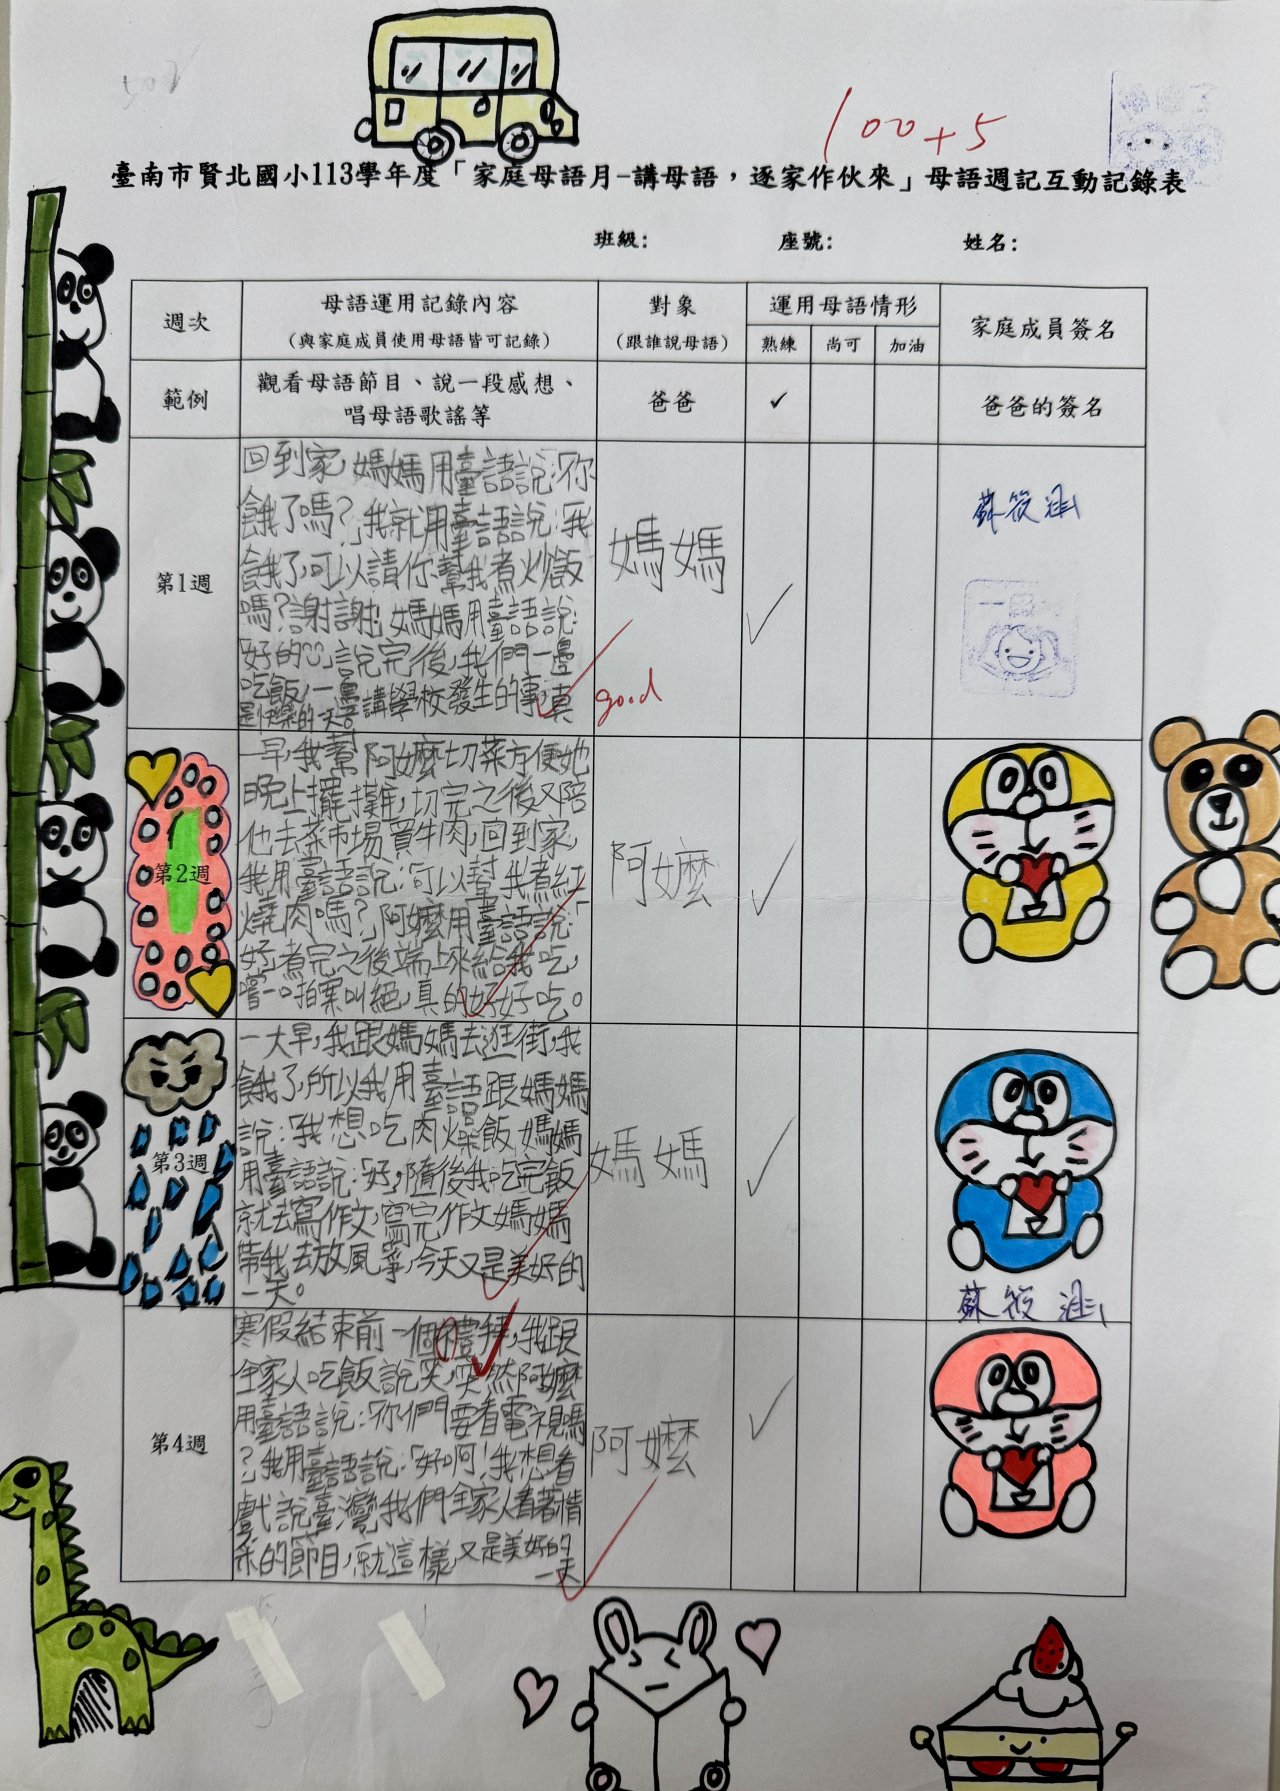 100+5
臺南市賢北國小113學年度「家庭母語月-講母語，逐家作伙來」母語週記互動記錄表
班級: 座號: 姓名:
週次 母語運用記錄內容 對象 運用母語情形 家庭成員簽名
（與家庭成員使用母語皆可記錄） （跟誰說母語） 熟練 尚可 加油
範例 觀看母語節目、說一段感想、 爸爸 ✓ 爸爸的簽名
唱母語歌謠等
第1週
回到家，媽媽用臺語說:「你
餓了嗎?」我就用臺語說:「我
餓了,可以請你幫我煮炒飯
嗎?謝謝!」媽媽用臺語說:
「好的」說完後,我們一邊
吃飯,一邊講學校發生的事,真
是快樂的一天。
媽媽
good
第2週
一早,我幫阿嬤切菜方便她
晚上擺攤,切完之後又陪
他去菜市場買牛肉,回到家,
我用臺語說:「可以幫我煮紅
燒肉嗎?」阿嬤用臺語說:「
好」煮完之後端上來給我吃,
嚐一口拍案叫絕,真的好好吃。
阿嬤
第3週
一大早,我跟媽媽去逛街,我
餓了,所以我用臺語跟媽媽
說:「我想吃肉燥飯」媽媽
用臺語說:「好」,隨後我吃完飯
就去寫作文,寫完作文媽媽
帶我去放風箏,今天又是美好的
一天。
媽媽
第4週
寒假結束前一個禮拜,我跟
全家人吃飯說笑,突然阿嬤
用臺語說:「你們要看電視嗎
?」我用臺語說:「好啊!我想看
戲說臺灣」我們全家人看著精
采的節目,就這樣,又是美好的
一天
阿嬤